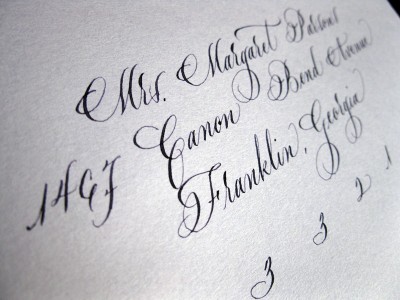 Mrs. Margaret Parsons
1467 Canon Bend Avenue
Franklin, Georgia
3 3 2 1